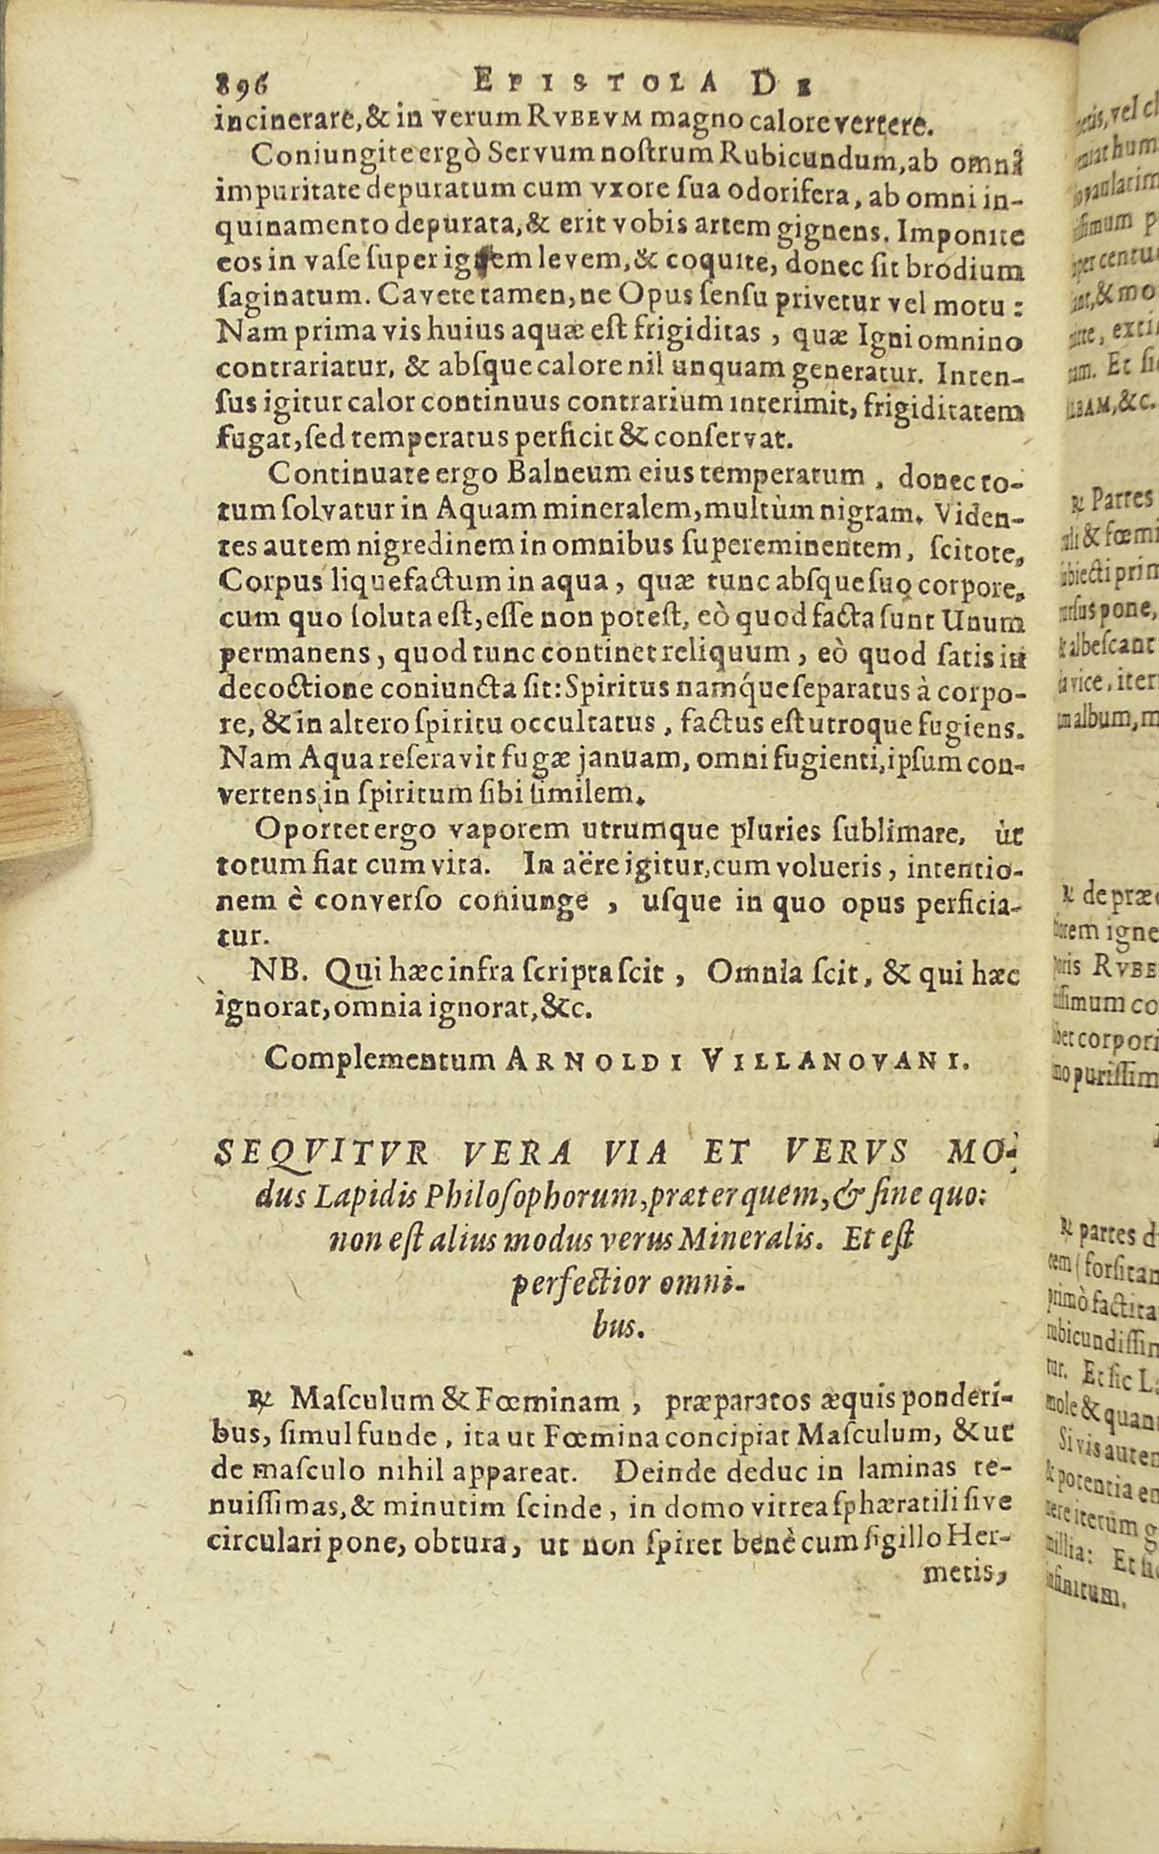 896 EPISTOLA DE
incinerare, & in verum RVBEVM magno calore vertere.
Coniungite ergò Servum nostrum Rubicundum, ab omni
impuritate depuratum cum vxore sua odorifera, ab omni in-
quinamento depurata, & erit vobis artem gignens. Imponite
eos in vase super ignem levem, & coquite, donec sit brodium
saginatum. Cavete tamen, ne Opus sensu privetur vel motu:
Nam prima vis huius aquæ est frigiditas, quæ Igni omnino
contrariatur, & absque calore nil unquam generatur. Inten-
sus igitur calor continuus contrarium interimit, frigiditatem
fugat, sed temperatus perficit & conservat.
Continuate ergo Balneum eius temperatum, donec to-
tum solvatur in Aquam mineralem, multùm nigram. Viden-
tes autem nigredinem in omnibus supereminentem, scitote,
Corpus liquefactum in aqua, quæ tunc absque suo corpore,
cum quo soluta est, esse non potest, eò quod facta sunt Unum
permanens, quod tunc continet reliquum, eò quod satis in
decoctione coniuncta sit: Spiritus namq́ue separatus à corpo-
re, & in altero spiritu occultatus, factus est utroque fugiens.
Nam Aqua reseravit fugæ januam, omni fugienti, ipsum con-
vertens in spiritum sibi similem.
Oportet ergo vaporem utrumque pluries sublimare, ùt
totum fiat cum vita. In aëre igitur, cum volueris, intentio-
nem è converso coniunge, usque in quo opus perficia-
tur.
NB. Qui hæc infra scripta scit, Omnia scit, & qui hæc
ignorat, omnia ignorat, &c.
Complementum ARNOLDI VILLANOVANI.
SEQVITVR VERA VIA ET VERVS MO-
dus Lapidis Philosophorum, præter quem, & sine quo
non est alius modus verus Mineralis. Et est
perfectior omni-
bus.
℞ Masculum & Fœminam, præparatos æquis ponderi-
bus, simul funde, ita ut Fœmina concipiat Masculum, & ut
de masculo nihil appareat. Deinde deduc in laminas te-
nuissimas, & minutim scinde, in domo vitrea sphæratili sive
circulari pone, obtura, ut non spiret benè cum sigillo Her-
metis,
vel
hum
&c.
℞ Partes
pone,
albescant
album,
℞ de præ
igne
corpori
℞ partes
(forsitan
primò
Et sic
mole &
Si vis autem
&
iterùm
infinitum.